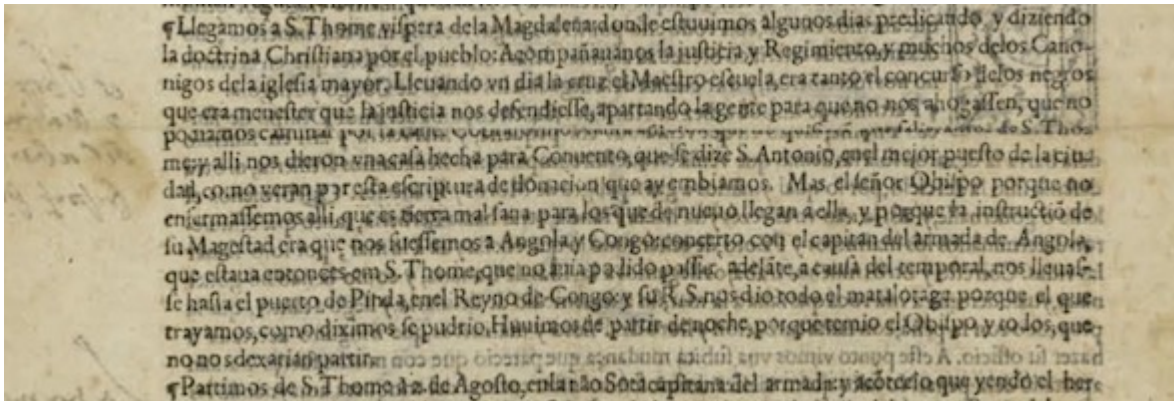 ¶Llegamos a S. Thome vispera dela Magdalena: donde estuuimos algunos dias predicando, y diziendo
la doctrina Christiana por el pueblo: Acompañauanos la justicia y Regimiento, y muchos delos Cano-
nigos dela iglesia mayor. Lleuando vn dia la cruz el Maestro escuela, era tanto el concurso delos negros
que era menester que la justicia nos defendiesse, apartando la gente para que no nos ahogassen, que no
podiamos caminar por la de S. Tho-
me: y alli nos dieron vna casa hecha para Conuento, que se dize S. Antonio, enel mejor puesto de la ciu
dad, como veran por esta escriptura de donacion que ay embiamos. Mas el señor Obispo porque no
enfermassemos alli, que es tierra mal sana para los que de nueuo llegan a ella, y porque la instructiõ de
su Magestad era que nos fuessemos a Angola y Congo: concerto con el capitan del armada de Angola,
que estaua entonces em S. Thome, que no auia podido passar adelãte, a causa del temporal, nos lleuas-
se hasta el puerto de Pinda, enel Reyno de Congo: y su R. S. nos dio todo el matalotage porque el que
trayamos, como diximos se pudrio. Huuimos de partir de noche, porque temio el Obispo y todos, que
no nos dexarian partir.
¶Partimos de S. Thome a 2. de Agosto, enla nao capitana del armada: y acõtecio que yendo el here